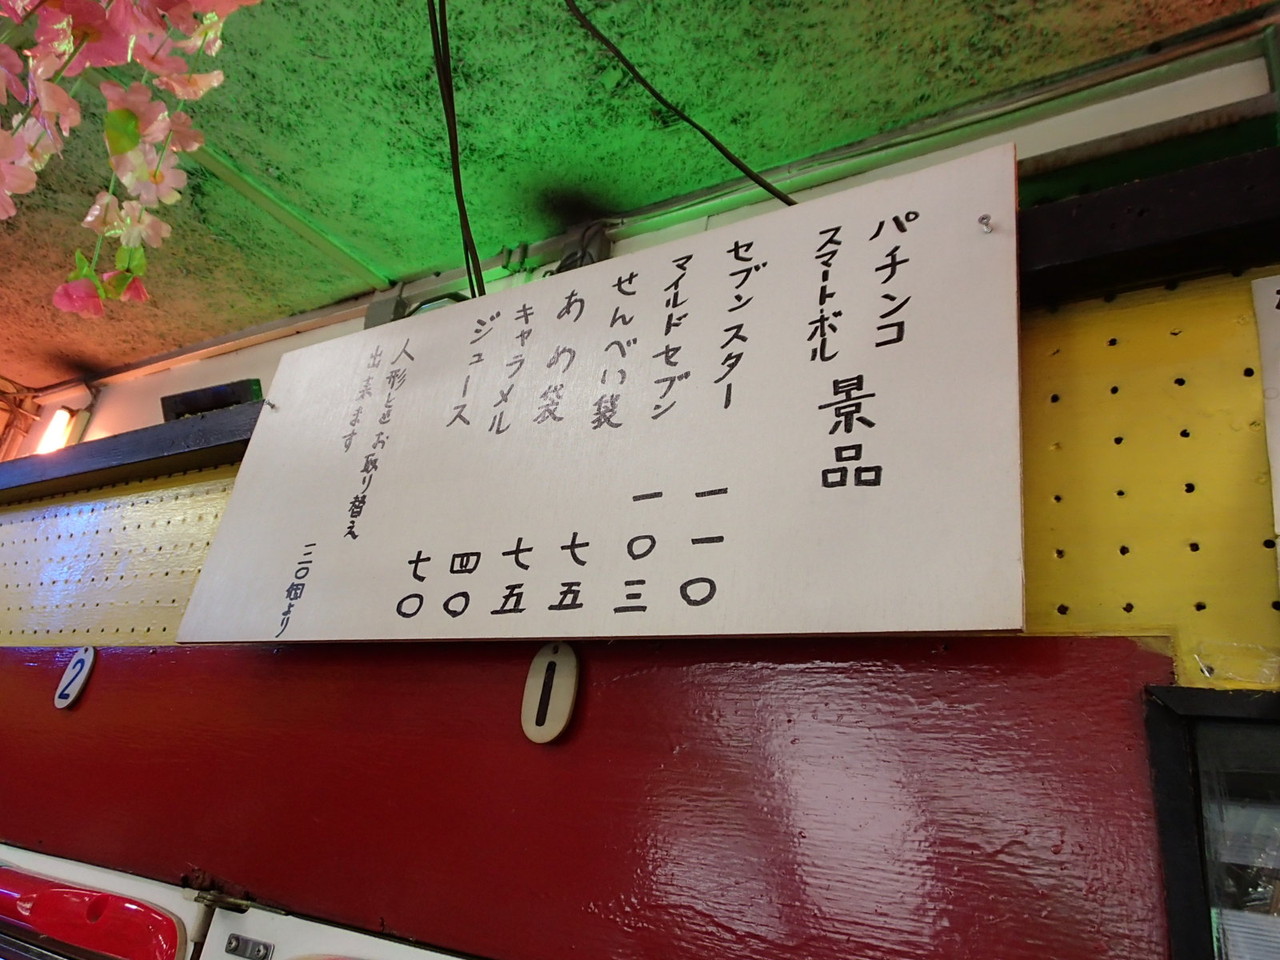 パチンコ
スマートボール
景品
セブンスター 一一〇
マイルドセブン 一〇三
せんべい袋 七五
あめ袋 七五
キャラメル 四〇
ジュース 七〇
人形ともお取り替え
出来ます
一二〇個より
1
2